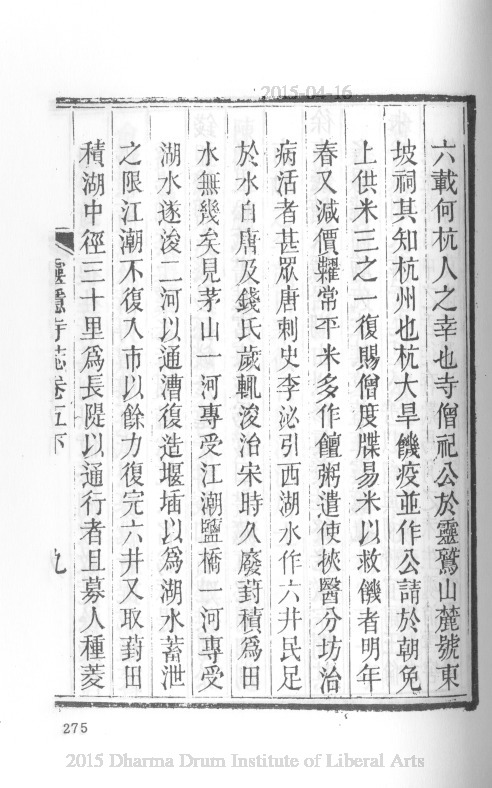 2015-04-16
六載何杭人之幸也寺僧祀公於靈鷲山麓號東
坡祠其知杭州也杭大旱饑疫並作公請於朝免
上供米三之一復賜僧度牒易米以救饑者明年
春又減價糶常平米多作饘粥遣使挾醫分坊治
病活者甚眾唐刺史李泌引西湖水作六井民足
於水白居及錢氏歲輒浚治宋時久廢葑積為田
水無幾矣見茅山一河專受江潮鹽橋一河專受
湖水遂浚二河以通漕復造堰㙮以為湖水蓄泄
之限江潮不復入市以餘力復完六井又取葑田
積湖中徑三十里為長隄以通行者且募人種菱
靈隱寺誌卷五下
九
275
2015 Dharma Drum Institute of Liberal Arts